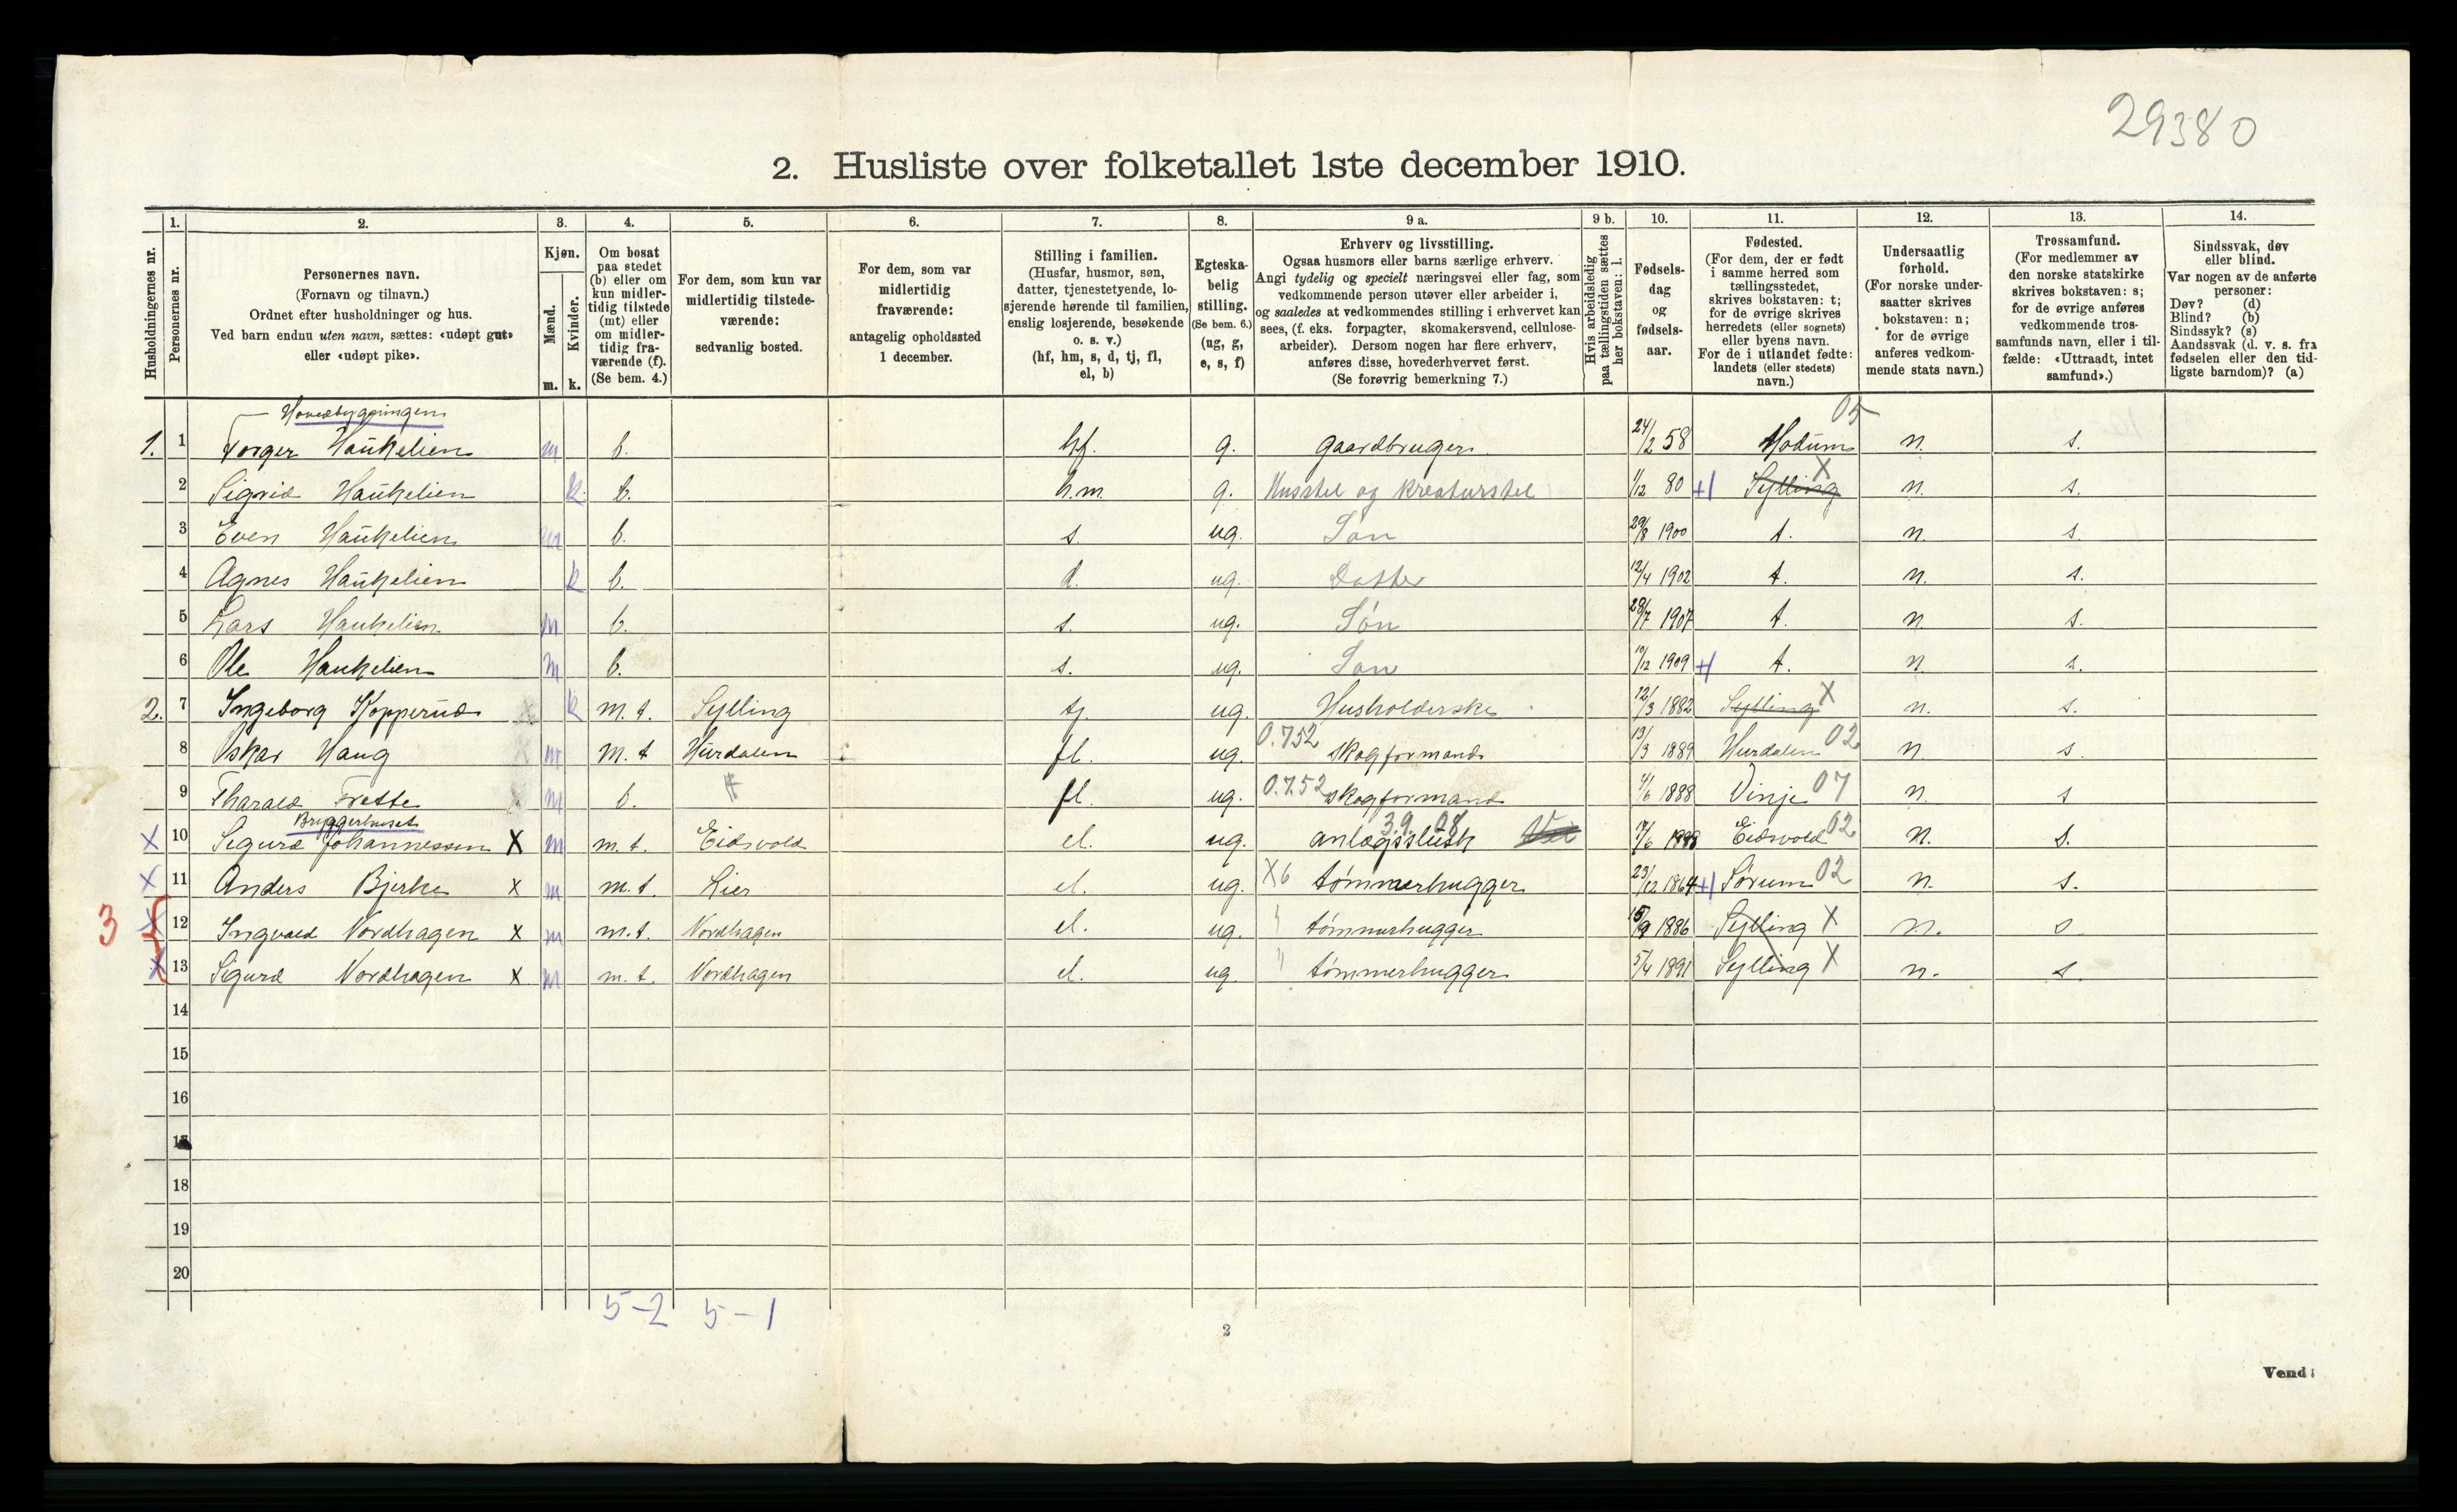 29380
2. Husliste over folketallet 1ste december 1910.
Husholdningernes nr.
1. Personernes nr.
2. Personernes navn. (Fornavn og tilnavn.) Ordnet efter husholdninger og hus. Ved barn endnu uten navn, sættes: «udøpt gut» eller «udøpt pike».
3. Kjøn. Mænd. m. Kvinder. k.
4. Om bosat paa stedet (b) eller om kun midlertidig tilstede (mt) eller om midlertidig fraværende (f). (Se bem. 4.)
5. For dem, som kun var midlertidig tilstedeværende: sedvanlig bosted.
6. For dem, som var midlertidig fraværende: antagelig opholdssted 1 december.
7. Stilling i familien. (Husfar, husmor, søn, datter, tjenestetyende, losjerende hørende til familien, enslig losjerende, besøkende o. s. v.) (hf, hm, s, d, tj, fl, el, b)
8. Egteskabelig stilling. (Se bem. 6.) (ug, g, e, s, f)
9 a. Erhverv og livsstilling. Ogsaa husmors eller barns særlige erhverv. Angi tydelig og specielt næringsvei eller fag, som vedkommende person utøver eller arbeider i, og saaledes at vedkommendes stilling i erhvervet kan sees, (f. eks. forpagter, skomakersvend, cellulosearbeider). Dersom nogen har flere erhverv, anføres disse, hovederhvervet først. (Se forøvrig bemerkning 7.)
9 b. Hvis arbeidsledig paa tællingstiden sættes her bokstaven: l.
10. Fødselsdag og fødselsaar.
11. Fødested. (For dem, der er født i samme herred som tællingsstedet, skrives bokstaven: t; for de øvrige skrives herredets (eller sognets) eller byens navn. For de i utlandet fødte: landets (eller stedets) navn.)
12. Undersaatlig forhold. (For norske undersaatter skrives bokstaven: n; for de øvrige anføres vedkommende stats navn.)
13. Trossamfund. (For medlemmer av den norske statskirke skrives bokstaven: s; for de øvrige anføres vedkommende trossamfunds navn, eller i tilfælde: «Uttraadt, intet samfund».)
14. Sindssvak, døv eller blind. Var nogen av de anførte personer: Døv? (d) Blind? (b) Sindssyk? (s) Aandssvak (d. v. s. fra fødselen eller den tidligste barndom)? (a)
Hovedbygningen
1. 1 Torger Haukelien m b. hf. g. gaardbruger 24/2 58 Modum 05 n. s.
2 Sigrid Haukelien k b. h.m. g. Husstel og Kreaturstel 1/12 80 + Sylling X n. s.
3 Even Haukelien m b. s. ug. Søn 29/8 1900 t. n. s.
4 Agnes Haukelien k b. d. ug. Datter 12/4 1902 t. n. s.
5 Lars Haukelien m b. s. ug. Søn 28/7 1907 t. n. s.
6 Ole Haukelien m b. s. ug. Søn 10/12 1909 + t. n. s.
2. 7 Ingeborg Kopperud X k m. t. Sylling tj. ug. Husholderske 12/3 1882 Sylling X n. s.
8 Oskar Haug X m m. t Hurdalen fl. ug. 0.752 skogformand 13/3 1889 Hurdalen 02 n. s.
9 Tharald Trette m b. fl. ug. 0.752 skogformand 4/6 1888 Vinje 07 n. s
Bryggerhuset
X 10 Sigurd Johannessen X m m. t. Eidsvold el. ug. anlægsslusk 3.9.08 17/6 Eidsvold 02 n. s.
X 11 Anders Bjerke X m m. t. Lier el. ug. X6 tømmerhugger 23/12 1864 + Sørum 02 n. s.
3 X 12 Ingvald Nordhagen X m m. t. Nordhagen el. ug. " tømmerhugger 15/9 1886 Sylling X n. s
X 13 Sigurd Nordhagen X m m. t. Nordhagen el. ug. " tømmerhugger 5/4 1891 Sylling X n. s.
14
15
16
17
18
19
20
5-2 5-1
2
Vend!